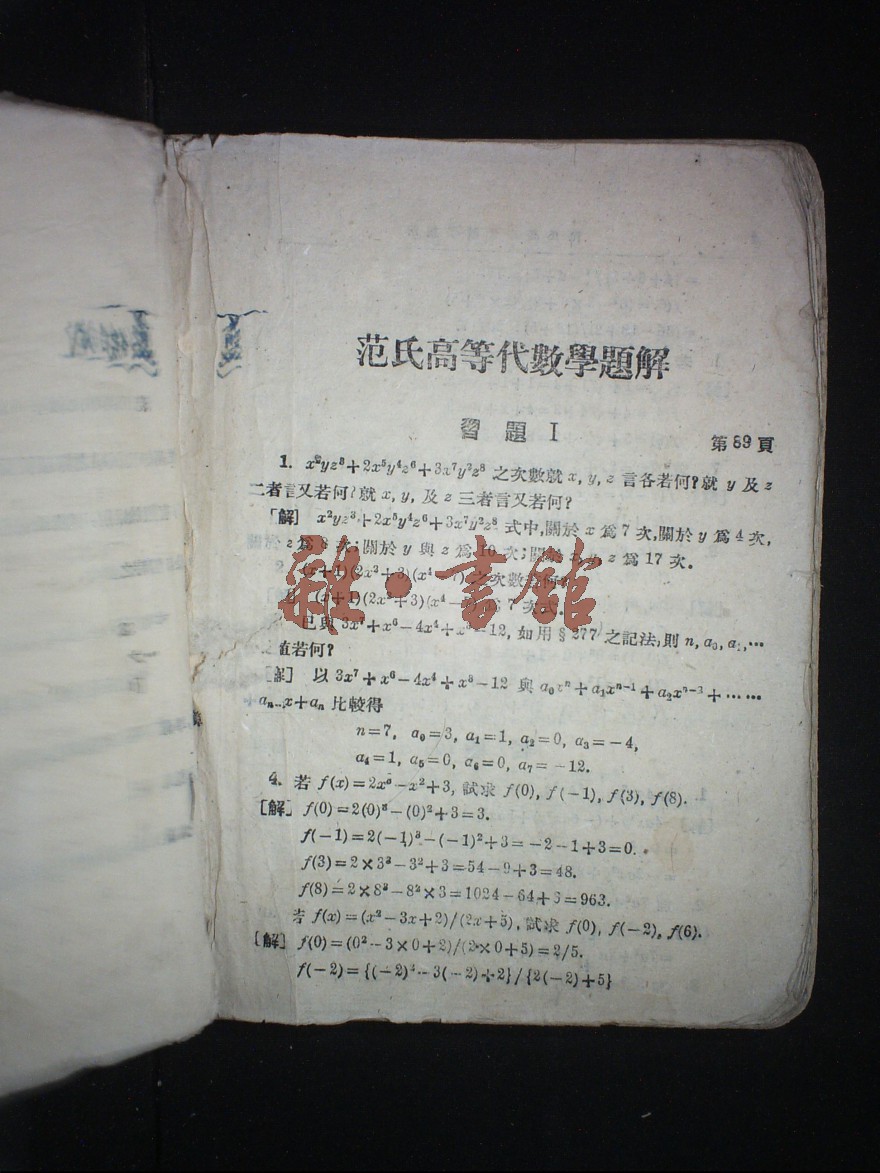 范氏高等代數學題解
習題 I
第89頁
1. x²yz³+2x⁵y⁴z⁶+3x⁷y²z⁸ 之次數就 x, y, z 言各若何?就 y 及 z
二者言又若何?就 x, y, 及 z 三者言又若何?
[解] x²yz³+2x⁵y⁴z⁶+3x⁷y²z⁸ 式中,關於 x 爲 7 次,關於 y 爲 4 次,
於 z 爲 8 次;關於 y 與 z 爲 10 次;關於 z 爲 17 次.
(x+1)(2x²+3)(x⁴ 之次數
(x+1)(2x²+3)(x⁴ 爲 7 次式.
已與 3x⁷+x⁶-4x⁴+x³-12, 如用 § 277 之記法,則 n, a₀, a₁,…
之值若何?
[解] 以 3x⁷+x⁶-4x⁴+x³-12 與 a₀xⁿ+a₁xⁿ⁻¹+a₂xⁿ⁻²+……
+aₙ₋₁x+aₙ 比較得
n=7, a₀=3, a₁=1, a₂=0, a₃=-4,
a₄=1, a₅=0, a₆=0, a₇=-12.
4. 若 f(x)=2x³-x²+3, 試求 f(0), f(-1), f(3), f(8).
[解] f(0)=2(0)³-(0)²+3=3.
f(-1)=2(-1)³-(-1)²+3=-2-1+3=0.
f(3)=2×3³-3²+3=54-9+3=48.
f(8)=2×8³-8²×3=1024-64+3=963.
若 f(x)=(x²-3x+2)/(2x+5), 試求 f(0), f(-2), f(6).
[解] f(0)=(0²-3×0+2)/(2×0+5)=2/5.
f(-2)={(-2)²-3(-2)+2}/{2(-2)+5}
雜·書館